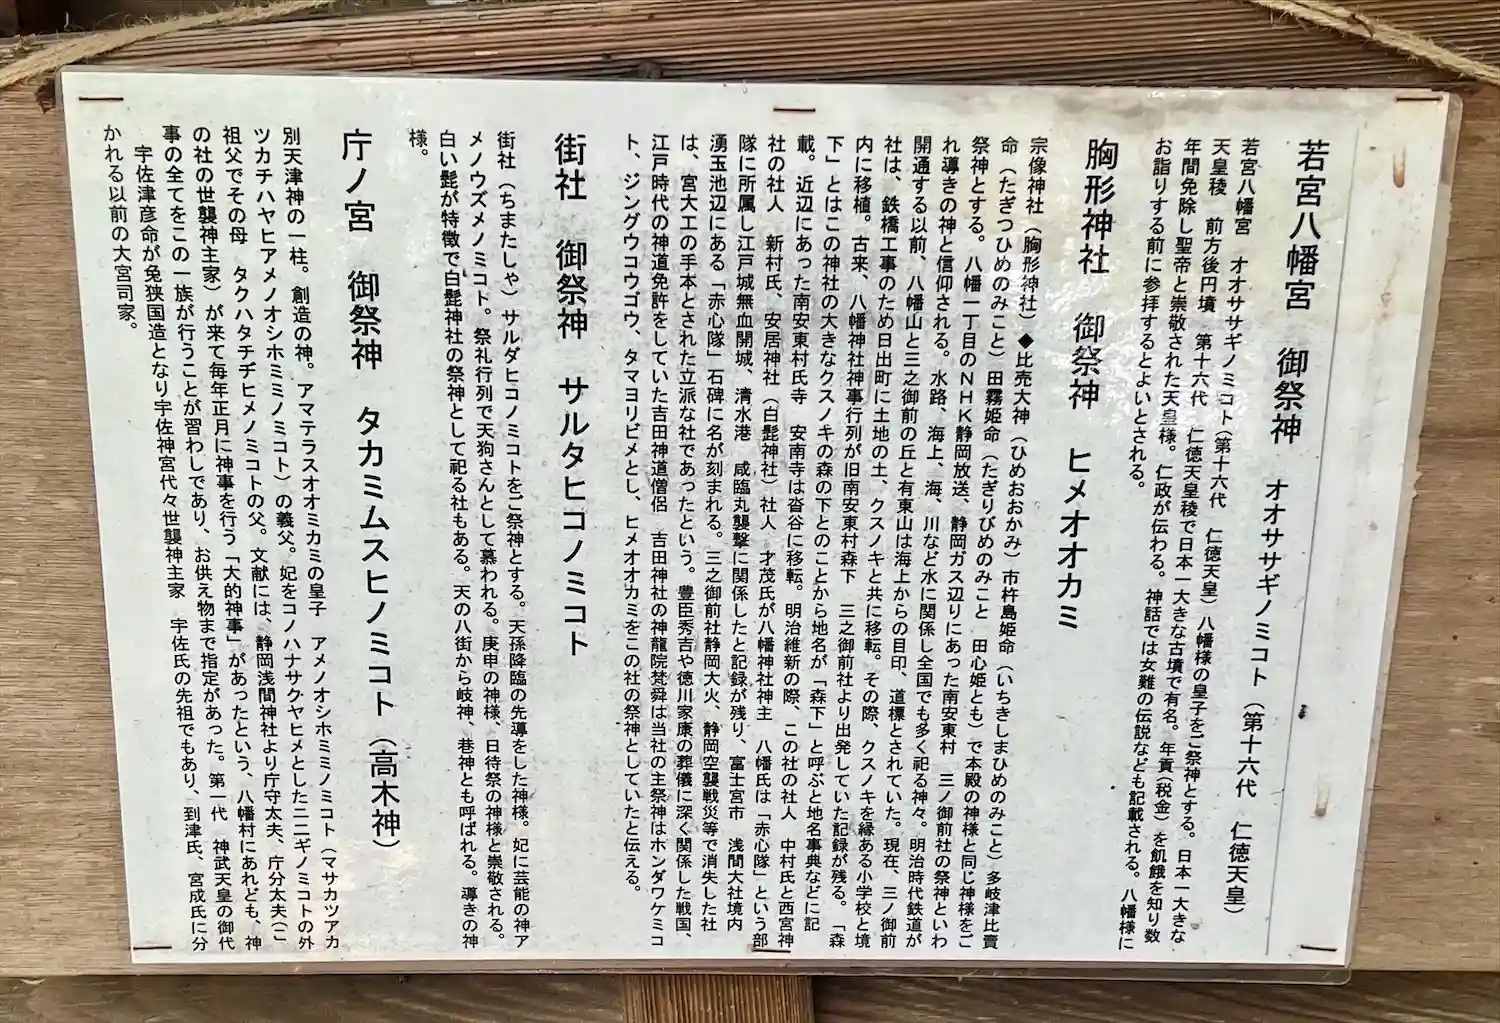 若宮八幡宮　御祭神　オオササギノミコト（第十六代　仁徳天皇）
若宮八幡宮　オオササギノミコト(第十六代　仁徳天皇）八幡様の皇子をご祭神とする。日本一大きな
天皇陵　前方後円墳　第十六代　仁徳天皇陵で日本一大きな古墳で有名。年貢(税金）を飢餓を知り数
年間免除し聖帝と崇敬された天皇様。仁政が伝わる。神話では女難の伝説なども記載される。八幡様に
お詣りする前に参拝するとよいとされる。
胸形神社　御祭神　ヒメオオカミ
宗像神社（胸形神社）◆比売大神（ひめおおかみ）市杵島姫命（いちきしまひめのみこと）多岐津比賣
命（たぎつひめのみこと）田霧姫命（たぎりびめのみこと　田心姫とも）で本殿の神様と同じ神様をご
祭神とする。八幡一丁目のＮＨＫ静岡放送、静岡ガス辺りにあった南安東村　三ノ御前社の祭神といわ
れ導きの神と信仰される。水路、海上、海、川など水に関係し全国でも多く祀る神々。明治時代鉄道が
開通する以前、八幡山と三之御前の丘と有東山は海上からの目印、道標とされていた。現在、三ノ御前
社は、鉄橋工事のため日出町に土地の土、クスノキと共に移転。その際、クスノキを縁ある小学校と境
内に移植。古来、八幡神社神事行列が旧南安東村森下　三之御前社より出発していた記録が残る。「森
下」とはこの神社の大きなクスノキの森の下とのことから地名が「森下」と呼ぶと地名事典などに記
載。近辺にあった南安東村氏寺　安南寺は沓谷に移転。明治維新の際、この社の社人　中村氏と西宮神
社の社人　新村氏、安居神社（白髭神社）社人　才茂氏が八幡神社神主　八幡氏は「赤心隊」という部
隊に所属し江戸城無血開城、清水港　咸臨丸襲撃に関係したと記録が残り、富士宮市　浅間大社境内
湧玉池辺にある「赤心隊」石碑に名が刻まれる。三之御前社静岡大火、静岡空襲戦災等で消失した社
は、宮大工の手本とされた立派な社であったという。豊臣秀吉や徳川家康の葬儀に深く関係した戦国、
江戸時代の神道免許をしていた吉田神道僧侶　吉田神社の神龍院梵舜は当社の主祭神はホンダワケミコ
ト、ジングウコウゴウ、タマヨリビメとし、ヒメオオカミをこの社の祭神としていたと伝える。
街社　御祭神　サルタヒコノミコト
街社（ちまたしゃ）サルダヒコノミコトをご祭神とする。天孫降臨の先導をした神様。妃に芸能の神ア
メノウズメノミコト。祭礼行列で天狗さんとして慕われる。庚申の神様、日待祭の神様と崇敬される。
白い髭が特徴で白髭神社の祭神として祀る社もある。天の八街から岐神、巷神とも呼ばれる。導きの神
様。
庁ノ宮　御祭神　タカミムスヒノミコト（高木神）
別天津神の一柱。創造の神。アマテラスオオミカミの皇子　アメノオシホミミノミコト（マサカツアカ
ツカチハヤヒアメノオシホミミノミコト）の義父。妃をコノハナサクヤヒメとしたニニギノミコトの外
祖父でその母　タクハタチヂヒメノミコトの父。文献には、静岡浅間神社より庁守太夫、庁分太夫(こ
の社の世襲神主家）が来て毎年正月に神事を行う「大的神事」があったという、八幡村にあれども、神
事の全てをこの一族が行うことが習わしであり、お供え物まで指定があった。第一代　神武天皇の御代
宇佐津彦命が免狭国造となり宇佐神宮代々世襲神主家　宇佐氏の先祖でもあり、到津氏、宮成氏に分
かれる以前の大宮司家。